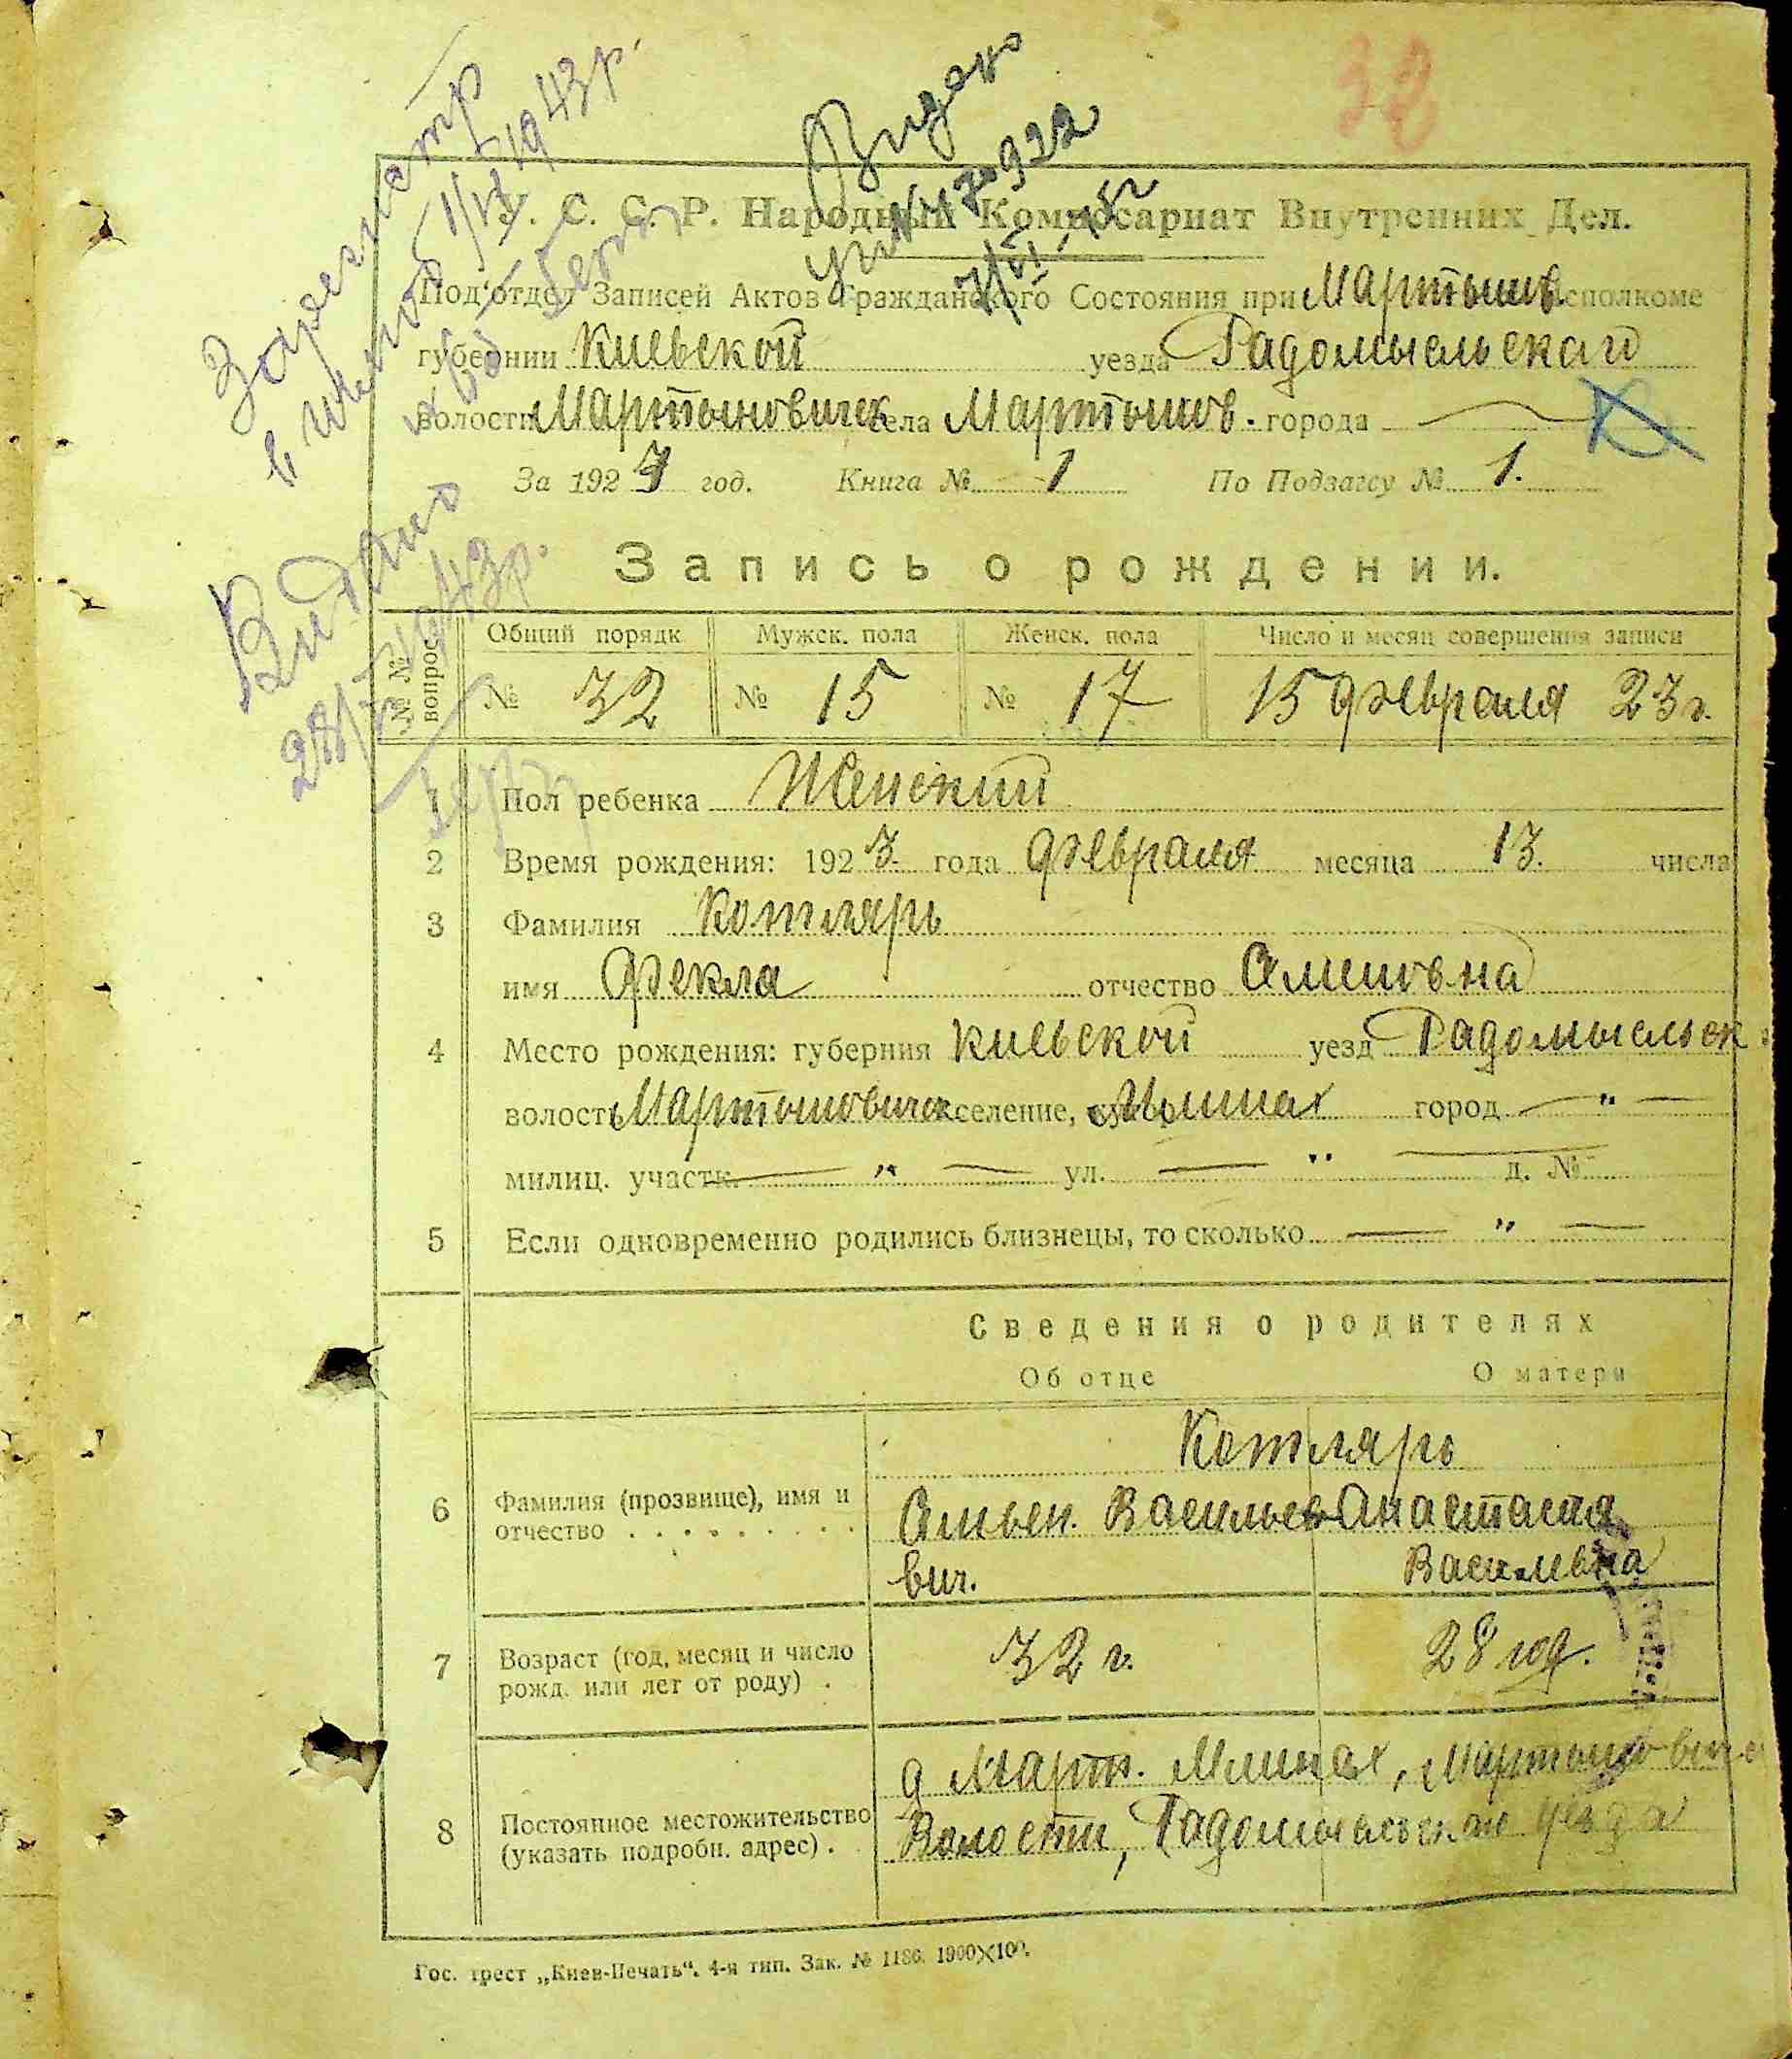 38
Зарегистр
в
1943р.
Видано
У. С. С. Р. Народный Комиссариат Внутренних Дел.
Под'отдел Записей Актов Гражданского Состояния при Мартынов исполкоме
губернии Киевской уезда Радомысльского
волости Мартыновичск села Мартынов. города —
За 1923 год. Книга № 1 По Подзагсу № 1.
Видано
28/ 1943р.
Запись о рождении.
№ № вопрос. Общий порядк Мужск. пола Женск. пола Число и месяц совершения записи
№ 32 № 15 № 17 15 февраля 23 г.
1 Пол ребенка Женский
2 Время рождения: 1923 года февраля месяца 13. числа
3 Фамилия Котляръ
имя Фекла отчество
4 Место рождения: губерния Киевской уезд Радомысльск
волость Мартыновичск селение, Млинах город — " —
милиц. участк. — " — ул. — " — д. №
5 Если одновременно родились близнецы, то сколько — " —
Сведения о родителях
Об отце О матери
Котляръ
6 Фамилия (прозвище), имя и отчество . . . . . . . . .
Васильевич. Анастасия Василевна
7 Возраст (год, месяц и число рожд. или лет от роду) .
32 г. 28 год.
8 Постоянное местожительство (указать подробн. адрес) .
д Март. Млинах, Мартынович
Волости, Радомысльского уезда
Гос. трест „Киев-Печать“. 4-я тип. Зак. № 1186. 1900×100.